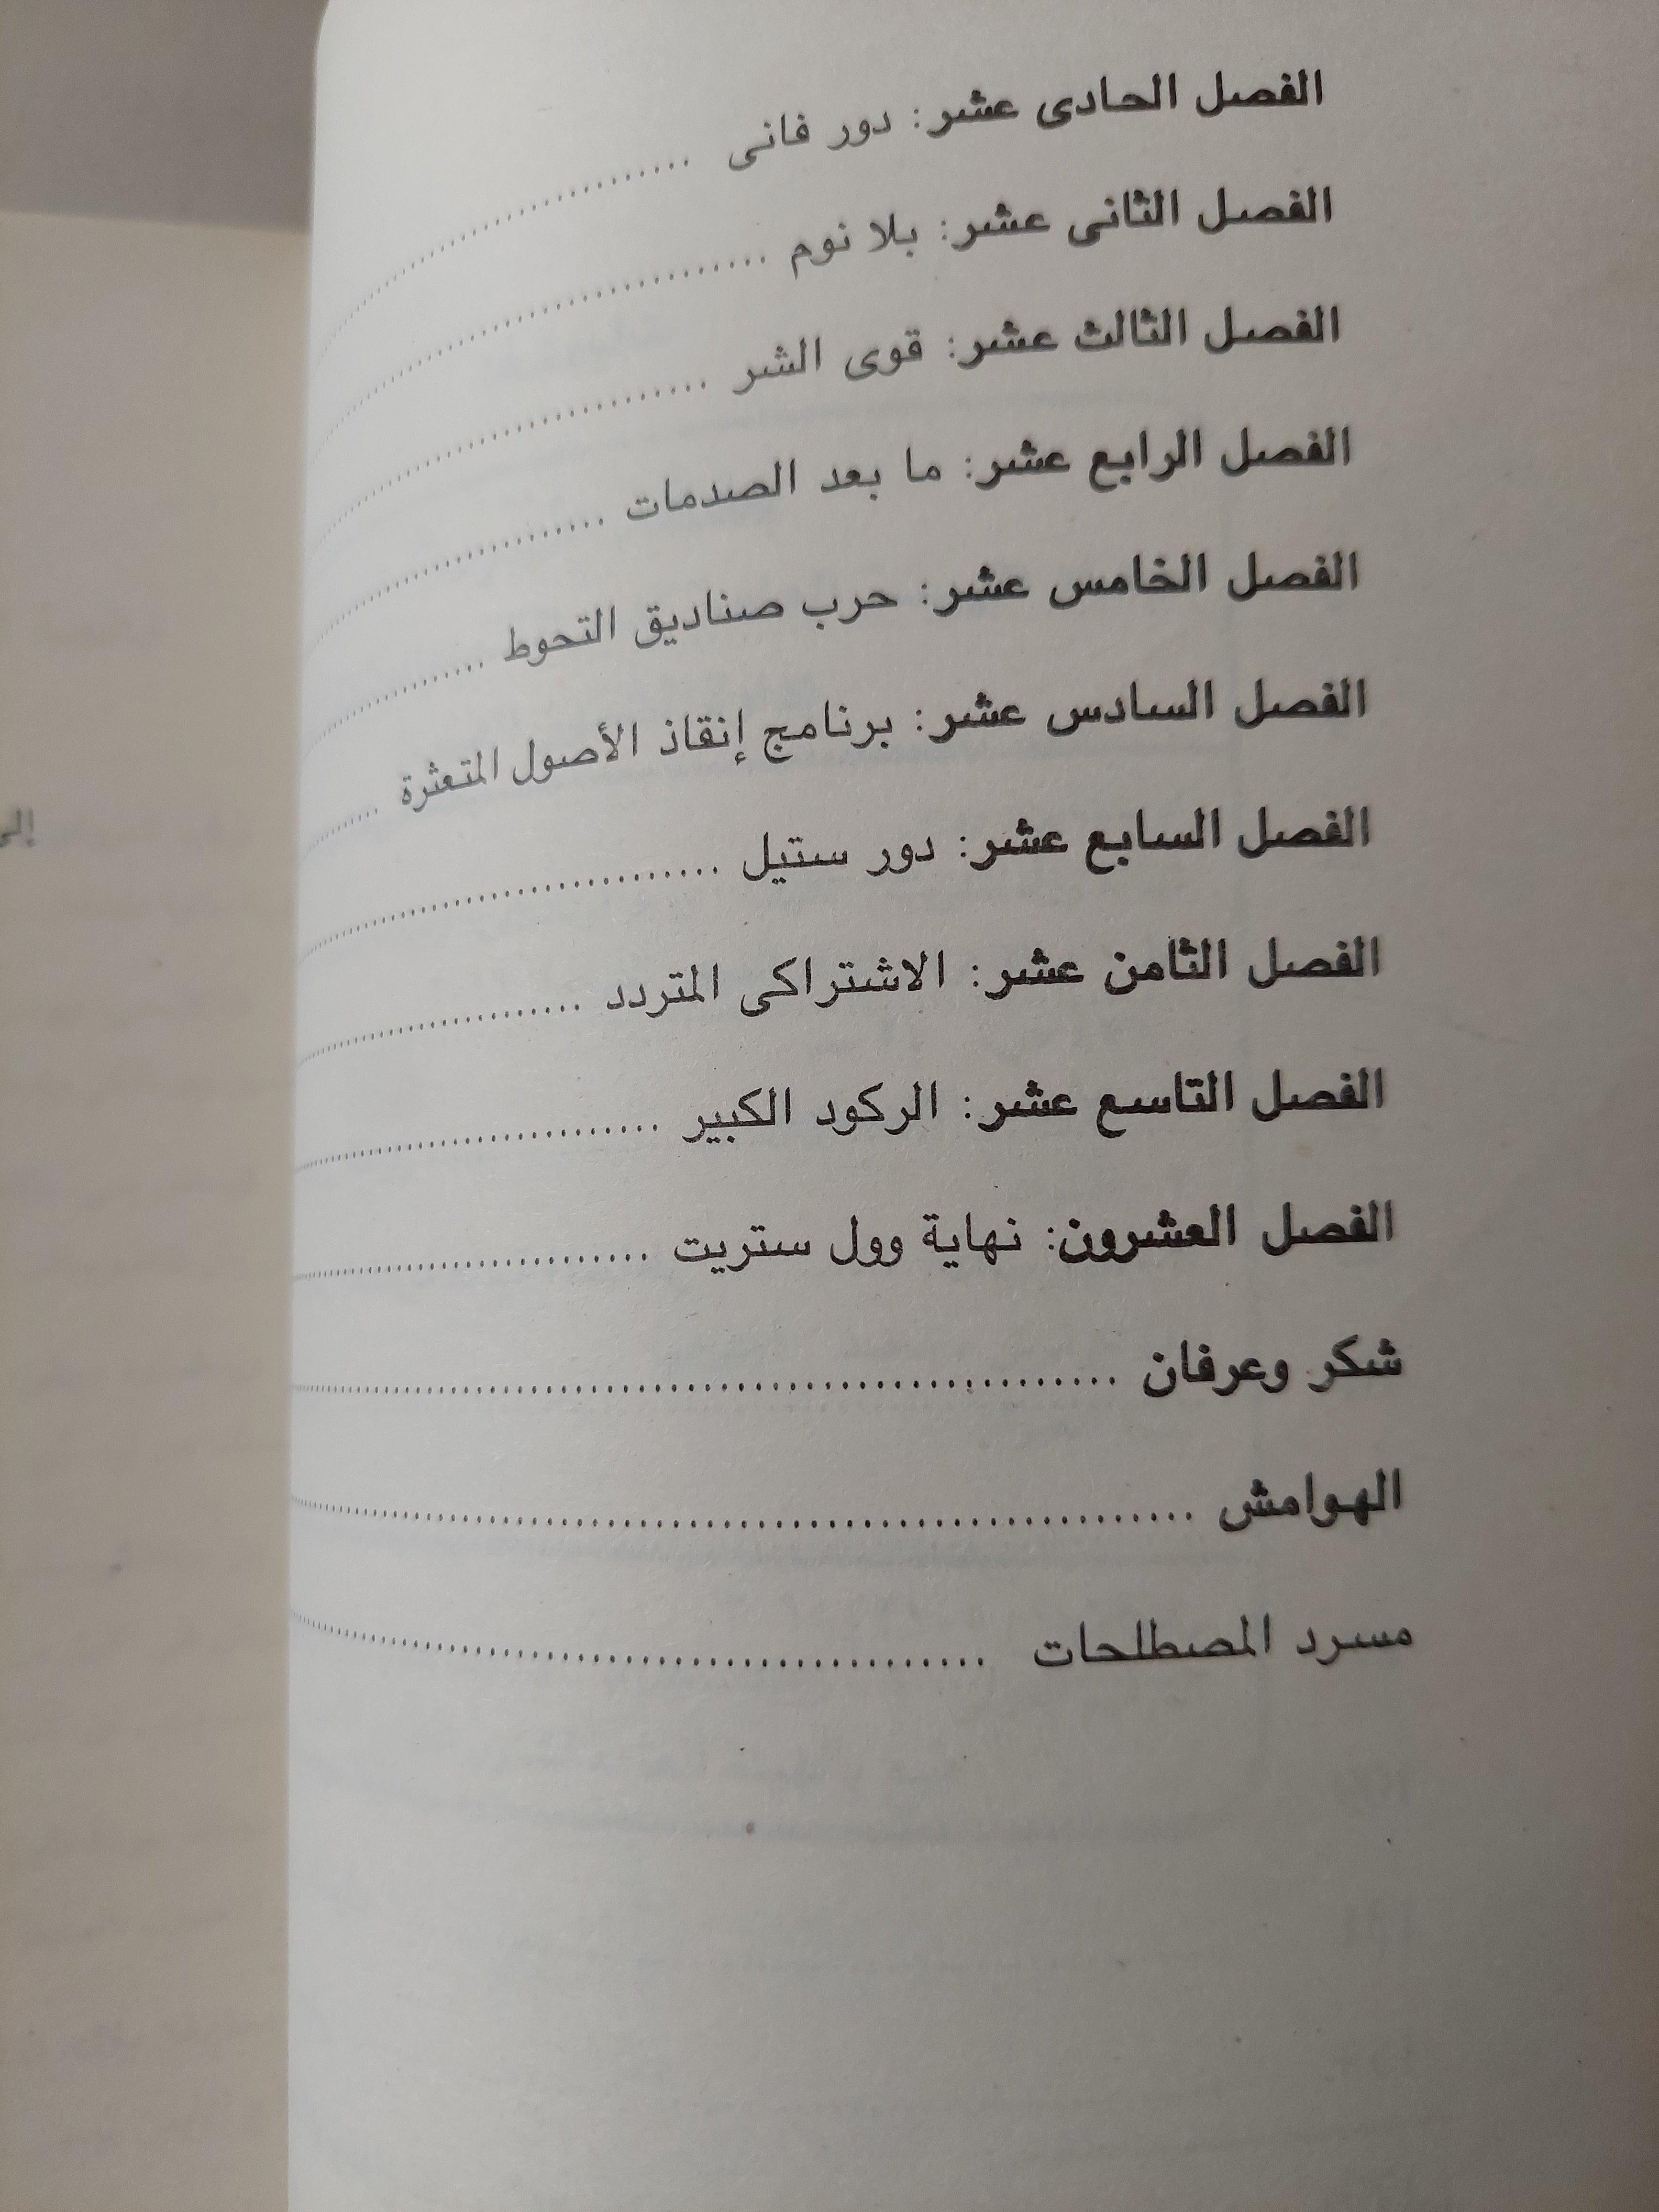 الفصل الحادى عشر: دور فانى ........................
الفصل الثانى عشر: بلا نوم ........................
الفصل الثالث عشر: قوى الشر ........................
الفصل الرابع عشر: ما بعد الصدمات ........................
الفصل الخامس عشر: حرب صناديق التحوط ........................
الفصل السادس عشر: برنامج إنقاذ الأصول المتعثرة ........................
الفصل السابع عشر: دور ستيل ........................
الفصل الثامن عشر: الاشتراكى المتردد ........................
الفصل التاسع عشر: الركود الكبير ........................
الفصل العشرون: نهاية وول ستريت ........................
شكر وعرفان ........................
الهوامش ........................
مسرد المصطلحات ........................